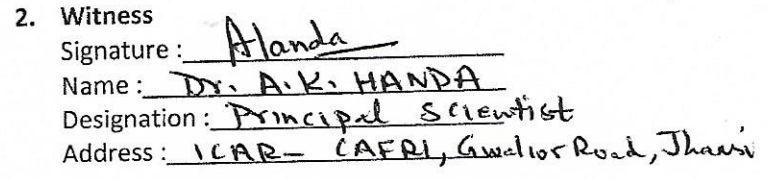 2. Witness
Signature : AHanda
Name : Dr. A.K. HANDA
Designation : Principal Scientist
Address : ICAR- CAFRI, Gwalior Road, Jhansi